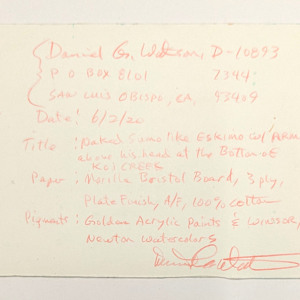 Daniel G. Watson, D-10893
P O BOX 8101 7344
SAN LUIS OBISPO, CA, 93409
Date: 6/2/20
Title : Naked Sumo like Eskimo w/
above his head at the Bottom of
CREEK
Paper : Morilla Bristol Board, 3 ply,
Plate Finish, A/F, 100% cotton
Pigments : Golden Acrylic Paints & Windsor
Newton Watercolors